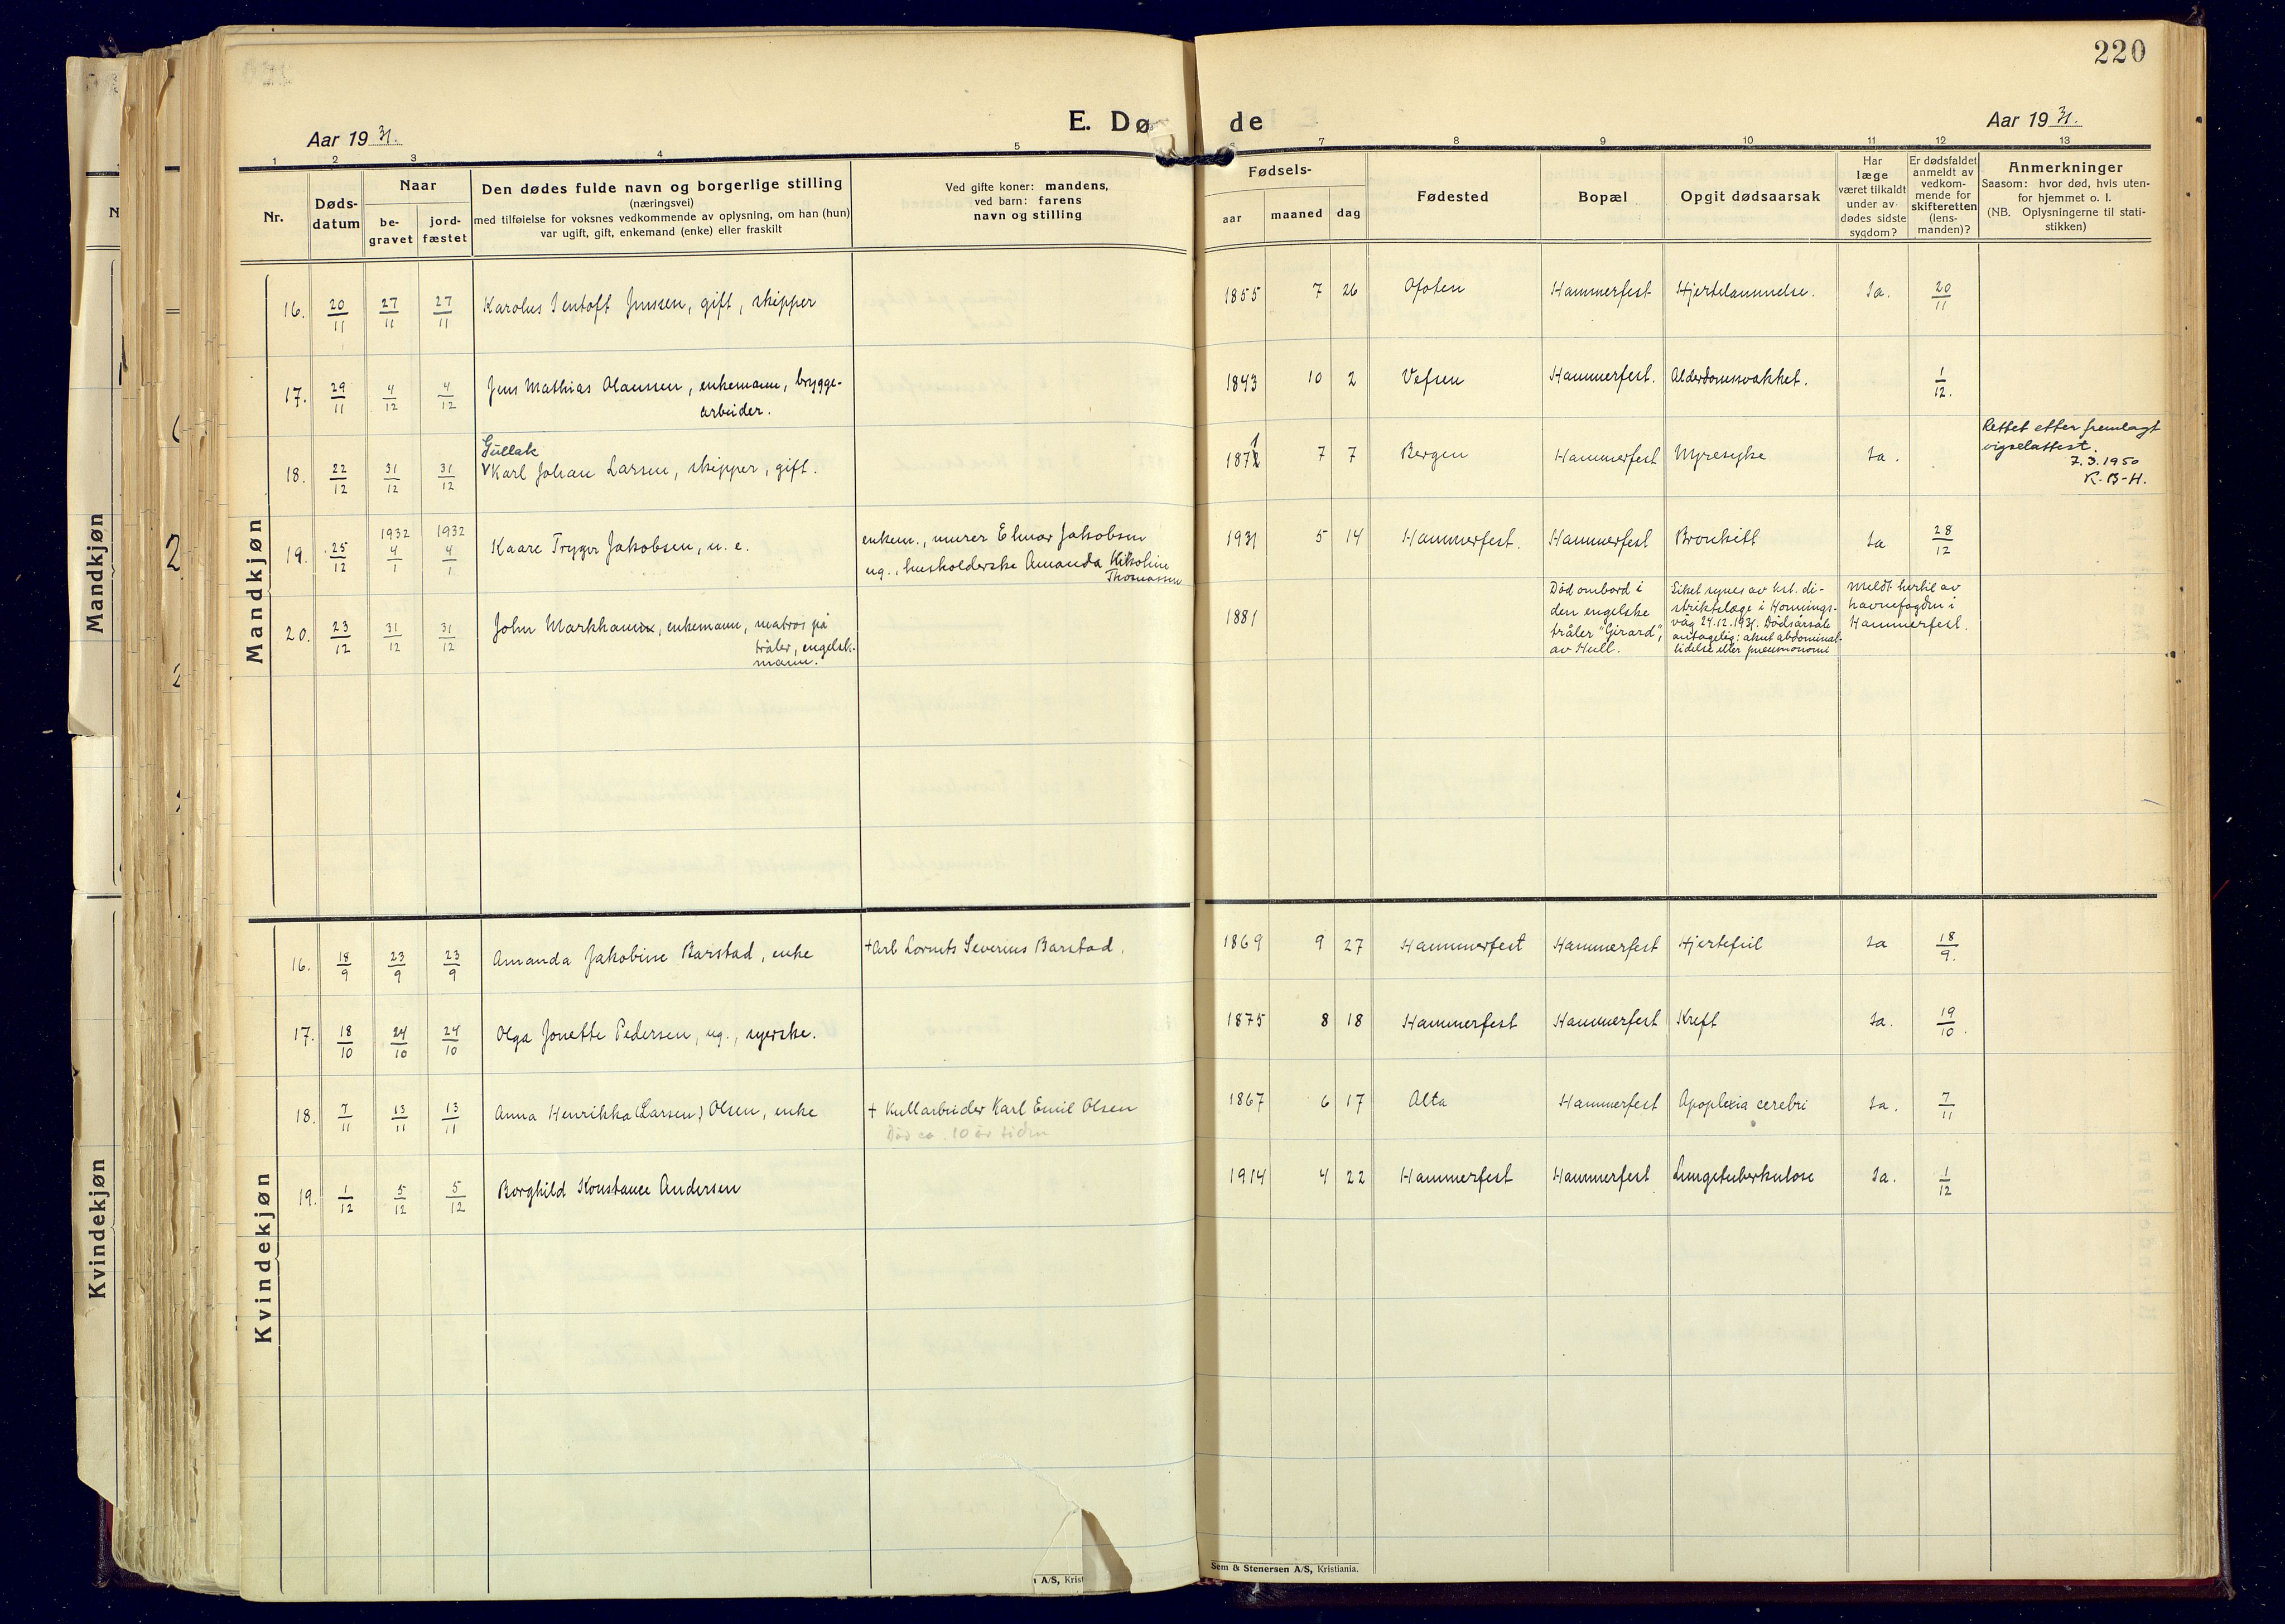 220
E. Dø de
Aar 1931.
Aar 1931.
1 2 3 4 5 7 8 9 10 11 12 13
Nr.
Døds-
datum
Naar
be-
gravet
jord-
fæstet
Den dødes fulde navn og borgerlige stilling
(næringsvei)
med tilføielse for voksnes vedkommende av oplysning, om han (hun)
var ugift, gift, enkemand (enke) eller fraskilt
Ved gifte koner: mandens,
ved barn: farens
navn og stilling
Fødsels-
aar
maaned
dag
Fødested
Bopæl
Opgit dødsaarsak
Har
læge
været tilkaldt
under av-
dødes sidste
sygdom?
Er dødsfaldet
anmeldt av
vedkom-
mende for
skifteretten
(lens-
manden)?
Anmerkninger
Saasom: hvor død, hvis uten-
for hjemmet o. l.
(NB. Oplysningerne til stati-
stikken)
Mandkjøn
16. 20/11 27/11 27/11 Karolus Jentoft Jenssen, gift, skipper 1855 7 26 Ofoten Hammerfest Hjertelammelse. Ja. 20/11
17. 29/11 4/12 4/12 Jens Mathias Olaussen, enkemann, brygge- 1843 10 2 Vefsen Hammerfest. Alderdomssvakhet. 1/12.
arbeider.
Gullak
18. 22/12 31/12 31/12 Karl Johan Larsen, skipper, gift. 1871 7 7 Bergen Hammerfest Myresyke Ja.
Rettet etter fremlagt
vigselattest.
7.3.1950
K. B-H.
1932 1932
19. 25/12 4/1 4/1 Kaare Trygve Jakobsen, u. e. enkem., murer Elmar Jakobsen 1931 5 14 Hammerfest. Hammerfest Bronkitt Ja 28/12
ug., husholderske Amanda Nikoline
Thomassen
20. 23/12 31/12 31/12 John Markham, enkemann, matros på 1881
tråler, engelsk-
mann.
Død ombord i
den engelske
tråler "Girard",
av Hull.
Liket synes av kst. di-
striktslæge i Honnings-
våg 24.12.1931. Dødsårsak
antagelig: akut abdominal-
lidelse eller pneumonomi
Meldt hertil av
havnefogden i
Hammerfest.
Kvindekjøn
16. 18/9 23/9 23/9 Amanda Jakobine Barstad, enke + Arb Lornts Severius Barstad. 1869 9 27 Hammerfest Hammerfest Hjertefeil Ja 18/9.
17. 18/10 24/10 24/10 Olga Jonette Pedersen, ug., syerske. 1875 8 18 Hammerfest Hammerfest Kreft Ja. 19/10.
18. 7/11 13/11 13/11 Anna Henrikka (Larsen) Olsen, enke + Kullarbeider Karl Emil Olsen 1867 6 17 Alta Hammerfest Apoplexia cerebri Ja. 7/11
Død ca. 10 år siden
19. 1/12 5/12 5/12 Borghild Konstance Andersen 1914 4 22 Hammerfest Hammerfest Lungetuberkulose Ja. 1/12
Mandkjøn
Kvindekjøn
A/S, Krist
Sem & Stenersen A/S, Kristiania.